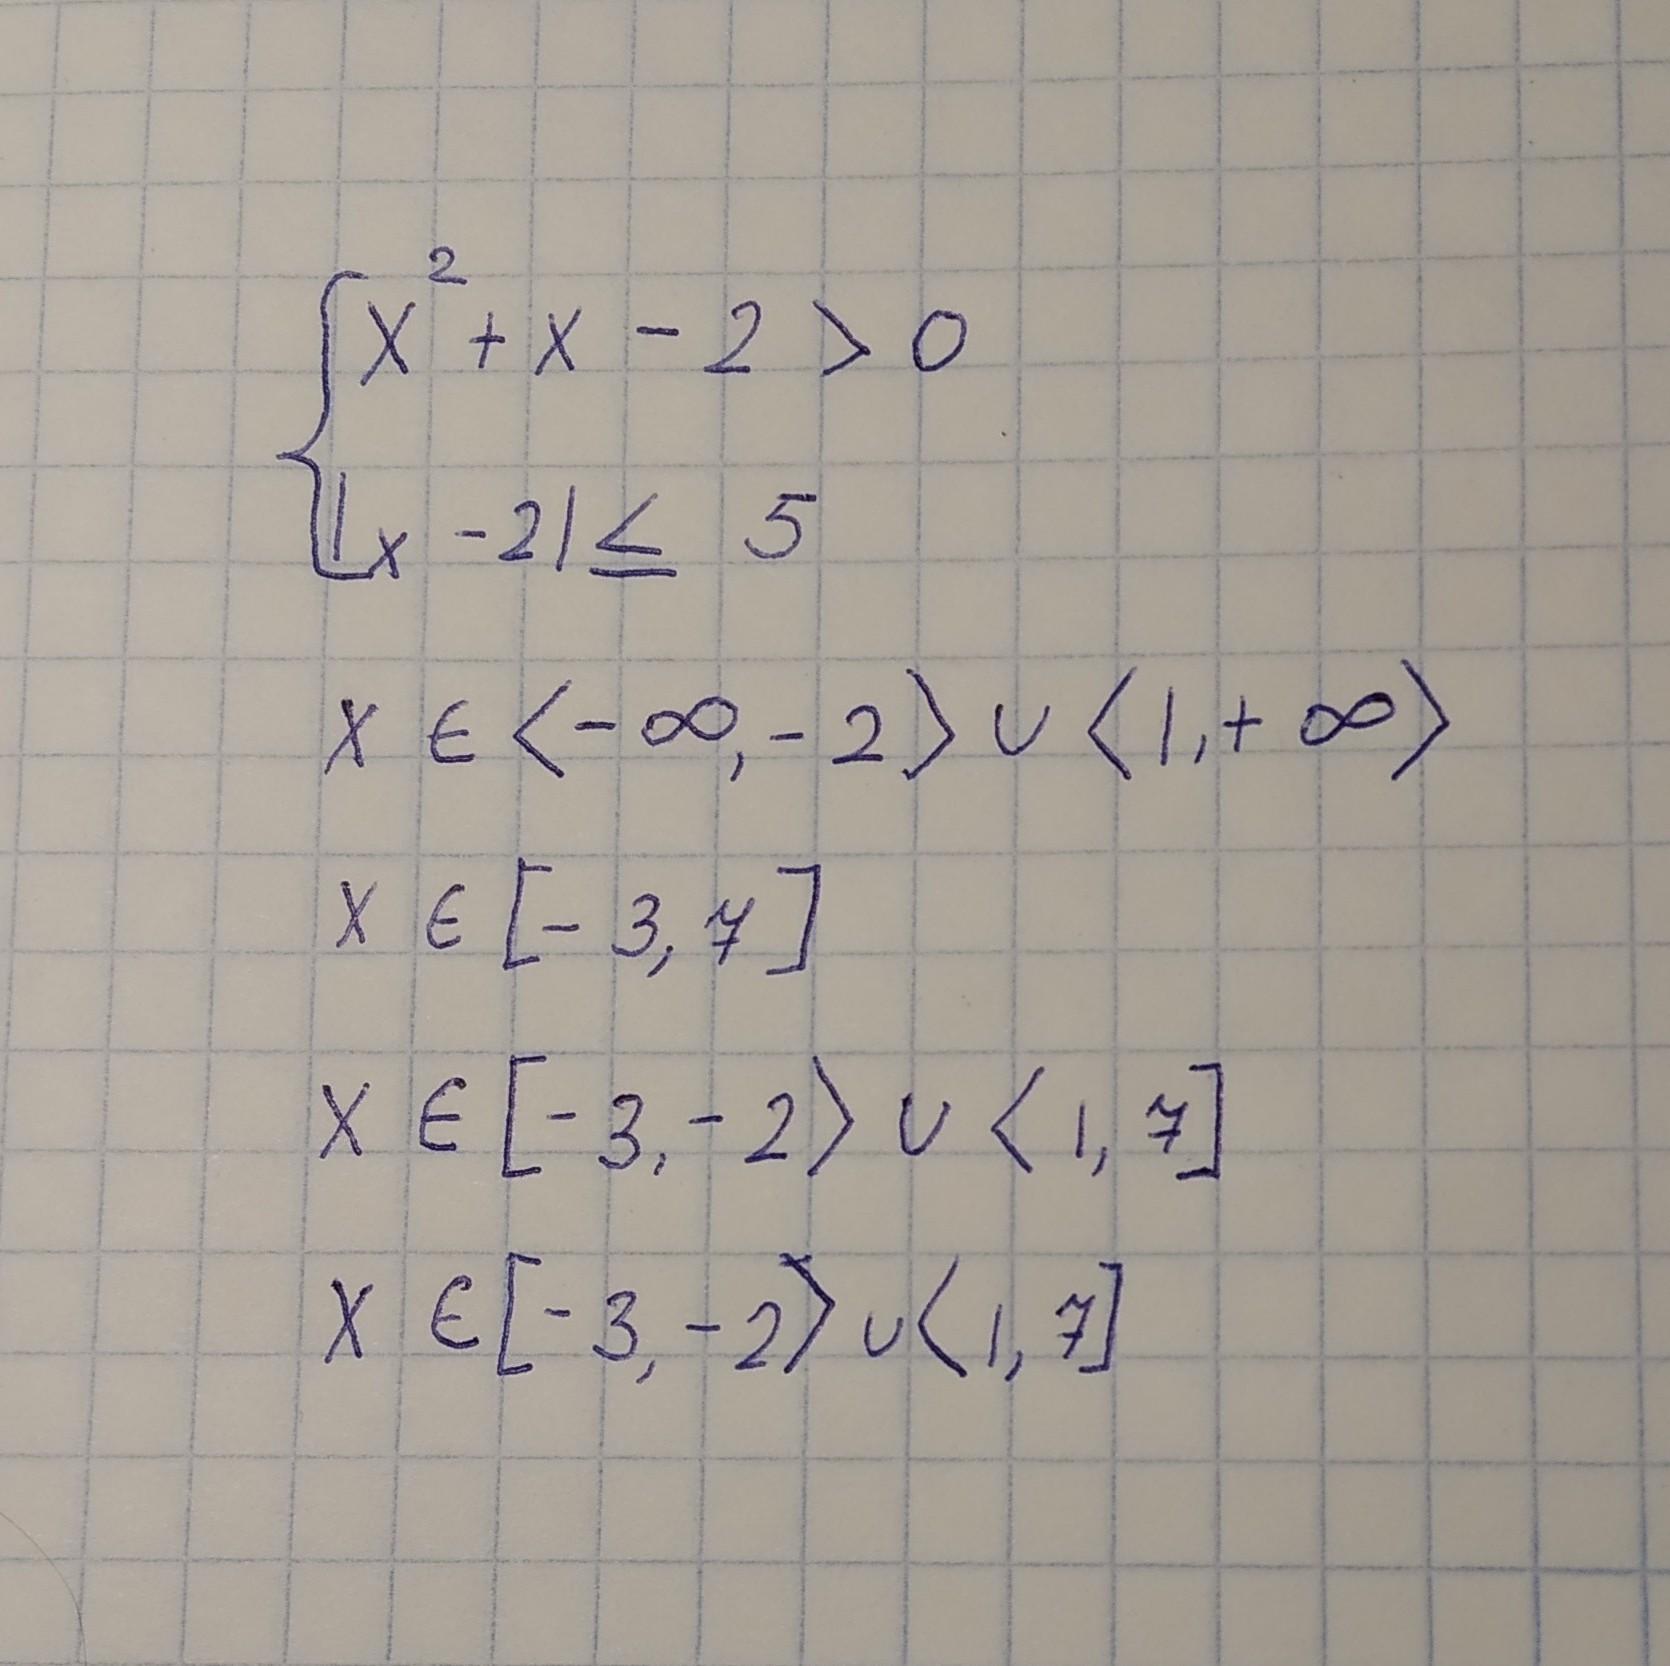 { x² + x - 2 > 0
|x - 2| ≤ 5
x ∈ ⟨-∞, -2⟩ ∪ ⟨1, +∞⟩
x ∈ [-3, 7]
x ∈ [-3, -2⟩ ∪ ⟨1, 7]
x ∈ [-3, -2⟩ ∪ ⟨1, 7]